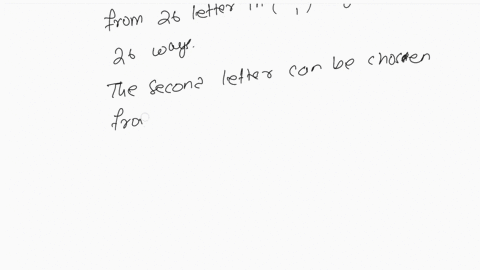 from 26 letter in ( 1 )
26 ways.
The second letter can be chosen
fro